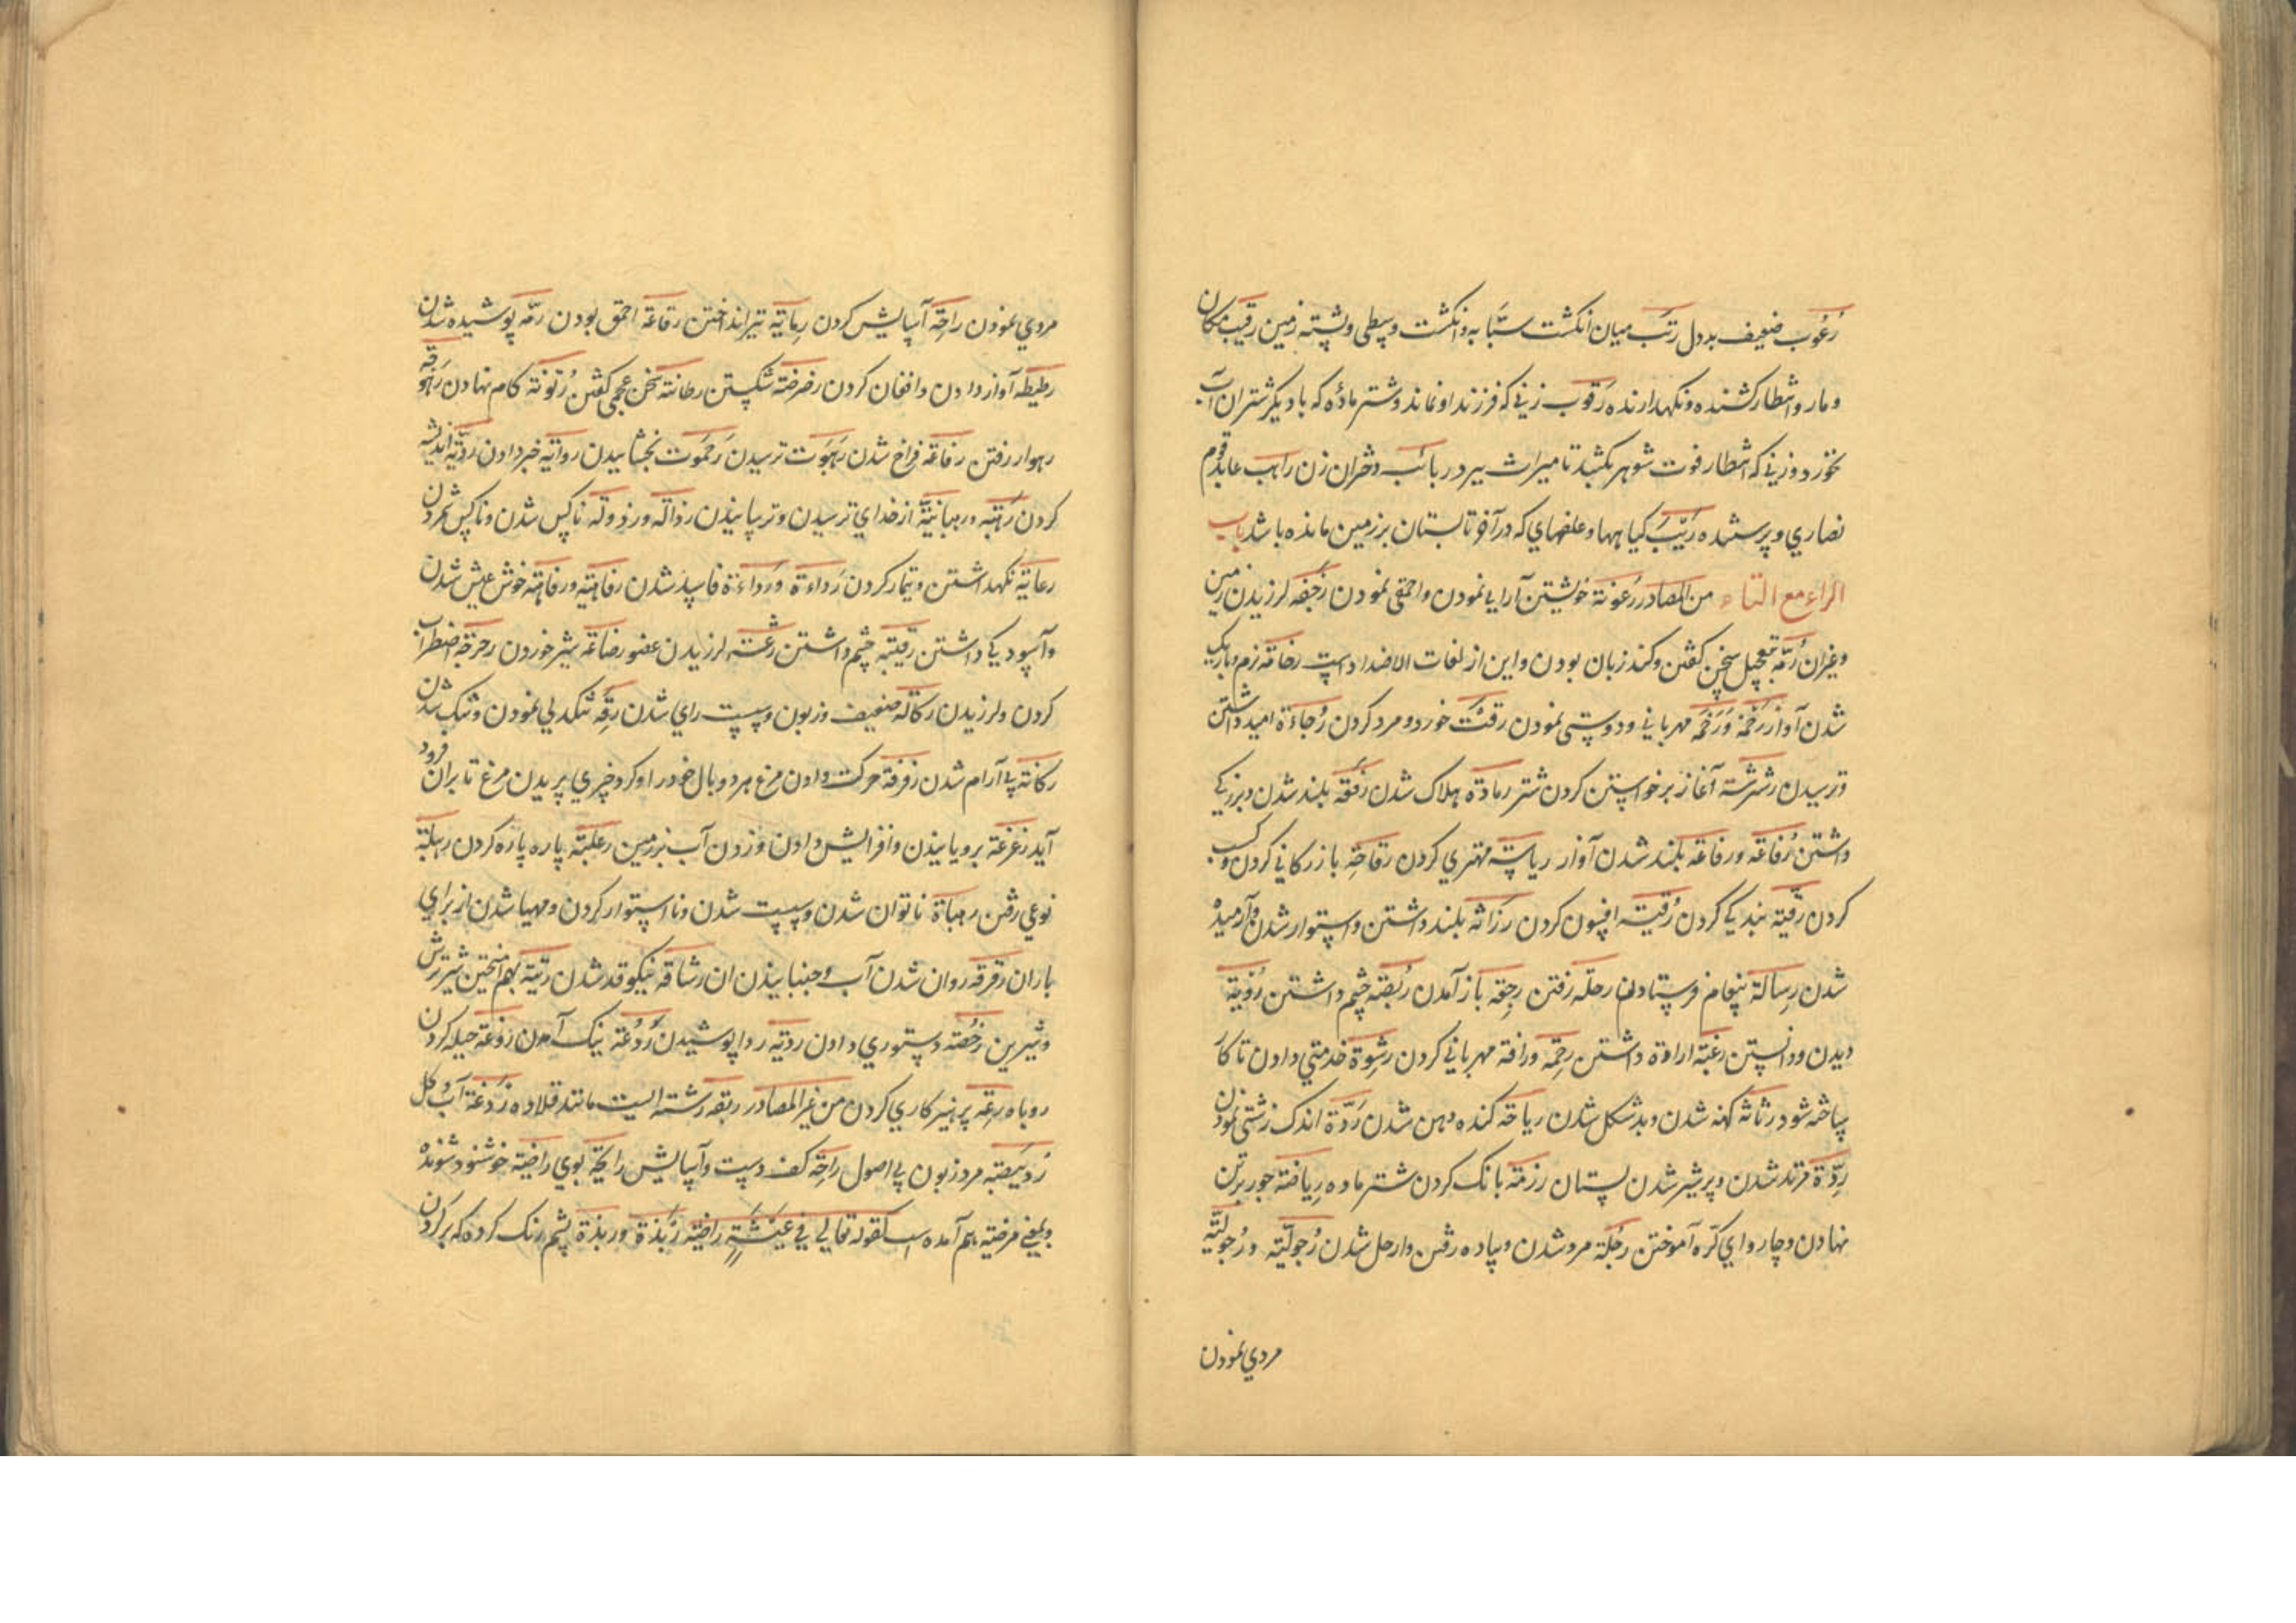 رُعُوب ضعیف بددل رَتَب میان انکشت سبّابه و انکشت وسطی و پشته زمین رقیب نکهبان
و مار و انتظار کشنده و نکهدارنده رَقوب زنی که فرزند او نماند و شتر مادّه که با دیکر شتران آب
نخورد و زنی که انتظار فوت شوهر بکشد تا میراث ببرد ربائب دختران زن راهب عابد قوم
نصاری و پرستنده رَبَّب کیاهها و علفهای که در آخر تابستان بر زمین مانده باشد باب
الراء مع التاء من المصادر رُعونة خویشتن آرایی نمودن و احمقی نمودن رَجفَه لرزیدن زمین
و غیران رُتّه بتعجیل سخن کفتن و کند زبان بودن و این از لغات الاضداد است رخامَه نرم و باریک
شدن آواز رَحْمَة وَرَخْمَه مهربانی و دوستی نمودن رفتَت خورد و مرد کردن رُجاءَة امید داشتن
و ترسیدن رشرشَة آغاز برخواستن کردن شتر رمادَة هلاک شدن رُفعَه بلند شدن و بزرکی
داشتن رُفاعَه و رفاعَه بلند شدن آواز ریاسَة مهتری کردن رقاحَة بازرکانی کردن و کسب
کردن رِقّیّة بندکی کردن رُقیَة افسون کردن رَزانَة بلند داشتن و استوار شدن و آرمیده
شدن رِسالَة پیغام فرستادن رحلَه رفتن رجعَة باز آمدن رُبصَة چشم داشتن رُؤیة
دیدن و دانستن رغبَة ارادة داشتن رحمَة و رافَة مهربانی کردن رشوَة خدمتی دادن تا کار
ساخته شود رثاثَة کهنه شدن و بد شکل شدن ریاحَة کنده دهن شدن رَدَّة اندک زشتی نمودن
رِدّة مرتد شدن و پر شیر شدن پستان رزمَة بانک کردن شتر ماده رِیاضَة جور بر تن
نهادن و چاروای کرّه آموختن رُجلَة مرد شدن و پیاده رفتن و ارحل شدن رُجولیّة و رُجولیّة
مردی نمودن
مردی نمودن راحَة آسایش کردن رِمایَة تیر انداختن رقاعَة احمق بودن رمّه پوسیده شدن
رطیطَه آواز دادن و افغان کردن رضرضَة شکستن رطانَة سخن عجمی کفتن رُتونَة کام نهادن رَهوقَة
رهوار رفتن رفاغَة فراخ شدن رَهَبوت ترسیدن رَحَموت بخشاییدن روایَة خبر دادن رویَّة اندیشه
کردن رَهبَة و رهبانیَّة از خدای ترسیدن و ترسانیدن رذالَه و رذولَه ناکس شدن و ناکس شمردن
رعایَة نکهداشتن و تیمار کردن رَداءَة وَرَداءَة فاسد شدن رفاهیَة و رفاهَة خوش عیش شدن
و آسودکی داشتن رِقبَة چشم داشتن رعشَة لرزیدن عضو رضاعَه شیر خوردن رجرجَة اضطراب
کردن و لرزیدن رکاکَة ضعیف و زبون و سست رای شدن رِقَّة تنکدلی نمودن و تنک شدن
رکانَة پی آرام شدن رفرفَة حرکت دادن مرغ هر دو بال خود را و کرد چیزی پریدن مرغ تا بران فرود
آید رَغرَغَة برویانیدن و افزایش دادن و زدن آب بر زمین رعبلَة پاره پاره کردن رِسلَة
نوعی رفتن رهیاءَة ناتوان شدن و سست شدن و نااستوار کردن و مهیا شدن ابر برای
باران رقرقَه روان شدن آب و جنبانیدن ان رشاقَة نیکو قد شدن رثیَة بهم آمیختن شیر ترش
و شیرین رُخصَة دستوری دادن ردیَة ردا پوشیدن رُدُعَة نیک آمدن روغَة حیله کردن
روباه رِعَة پرهیز کاری کردن من غیر المصادر ربقَه رشته ایست مانند قلاده رَدغَة آب و کل
رُوَیبضَة مرد زبون پی اصول راحَة کف دست و آسایش رایحَة بوی راضیَة خوشنود شونده
و بمعنی مرضیَه هم آمده است کقوله تعالی فی عیشَةٍ راضیَة رَبَذة و ربذَة پشم رنک کرده که بر کردن